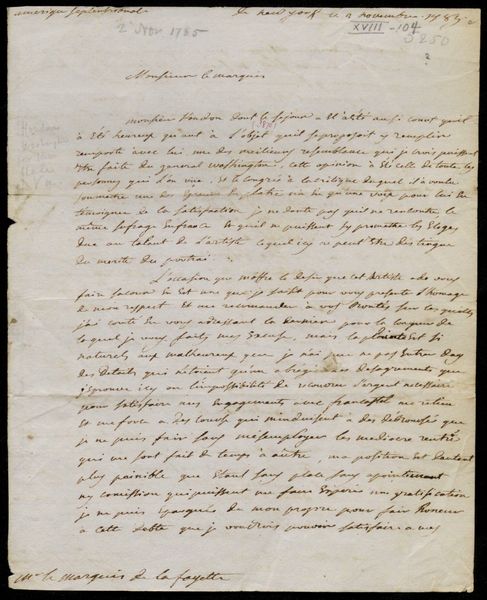 amerique septentrionale new york le 2 novembre 1785
2 Nov. 1785
XVIII - 104
5250
?
Monsieur le marquis
monsieur houdon dont le sejour a été aussi court quil
a été heureux quant a l'objet quil se proposoit y remplir
remporte avec lui une des meilleures resemblance que je crois puissent
etre faite du general washington, cette opinion a été celle de toutes les
personnes qui l'on vue, et le congrès a la critique duquel il a voulu
soumettre une des épreuves de platre na eu qu'une voix pour lui en
temoigner de la satisfaction je ne doute pas quil ne rencontre le
même sufrage en france et quil ne puissent sy promettre les Eloges
due au talent de l'artiste lequel icy ne peut Etre distingué
du merite du portrai
L'occasion que m'offre le desir que cet artiste a de vous
faire sa cour en est une que je saisit pour vous presenter l'homage
de mon respect Et me recommander a vos Bontés sur lesquelles
j'ai conté En vous adressant la derniere pour la longueur de
laquel je vous faits mes Excuse, mais la plainte Est si
naturel aux malheureux que je n'ai pas Entrer dans
des details qui n'etoient quun abregé des desagrements que
j'éprouve icy ou l'impossibilité de recouvrer l'argent necessaire
pour satisfaire mes Engagements avec me retien
et me force a des Course qui m'induisent a des débourcés que
je ne puis fair sans mesemployer les mediocre rentré
qui me sont fait de temps à autre, ma position est d'autant
plus painible que Etant sans place sans apointement
ny comission qui puissent me faire Esperer une gratification
je ne puis du mien propre pour fair honneur
à cette dette que je voudrois pouvoir satisfaire a mes
Mr le Marquis de la fayette